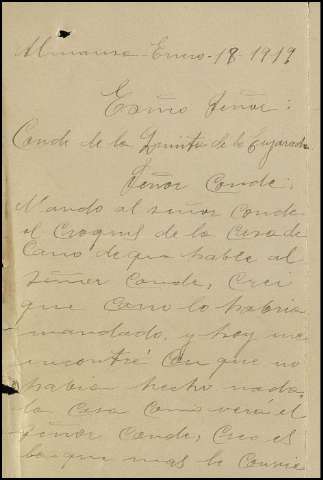 Enero - 18 - 1919
Exmo Señor:
Conde de la Quinta de la Enjarada
Señor Conde:
Mando al señor Conde
el Croquis de la Casa de
Cano de que hable al
señor Conde, Crei
que Cano lo habria
mandado, y hoy me
encontré Con que no
habia hecho nada,
la Casa Como verá el
señor Conde, Creo es
la que mas le Convie